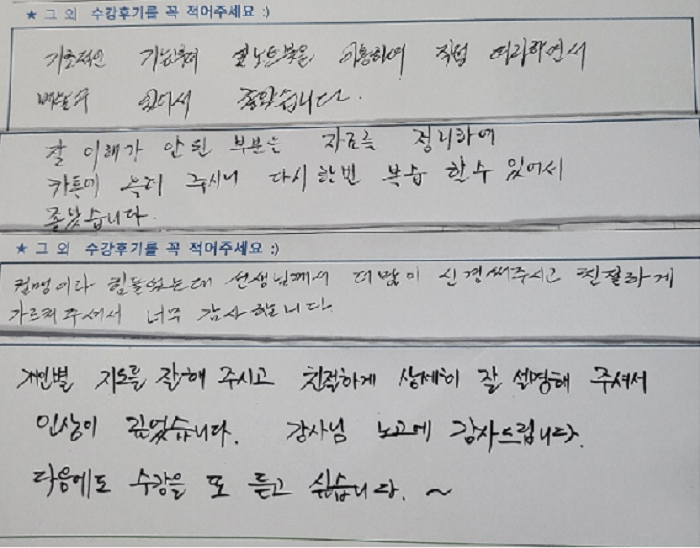 ★ 그 외 수강후기를 꼭 적어주세요 :)
기초적인 기능부터 이용하여 직접 하면서
배울수 있어서 좋았습니다.
잘 이해가 안 된 부분은 자료를 정리하여
카톡에 올려 주시니 다시 한번 복습 할 수 있어서
좋았습니다.
★ 그 외 수강후기를 꼭 적어주세요 :)
컴맹이라 힘들었는데 선생님께서 더 많이 신경써주시고 친절하게
가르쳐 주셔서 너무 감사합니다.
개인별 지도를 잘해 주시고 친절하게 상세히 잘 설명해 주셔서
인상이 깊었습니다. 강사님 노고에 감사드립니다.
다음에도 수강을 또 듣고 싶습니다. ~